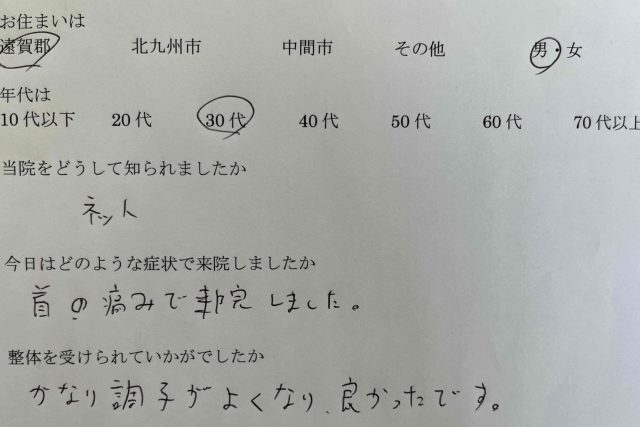 お住まいは
遠賀郡 北九州市 中間市 その他 男・女
年代は
10代以下 20代 30代 40代 50代 60代 70代以上
当院をどうして知られましたか
ネット
今日はどのような症状で来院しましたか
首の痛みで来院しました。
整体を受けられていかがでしたか
かなり調子がよくなり、良かったです。